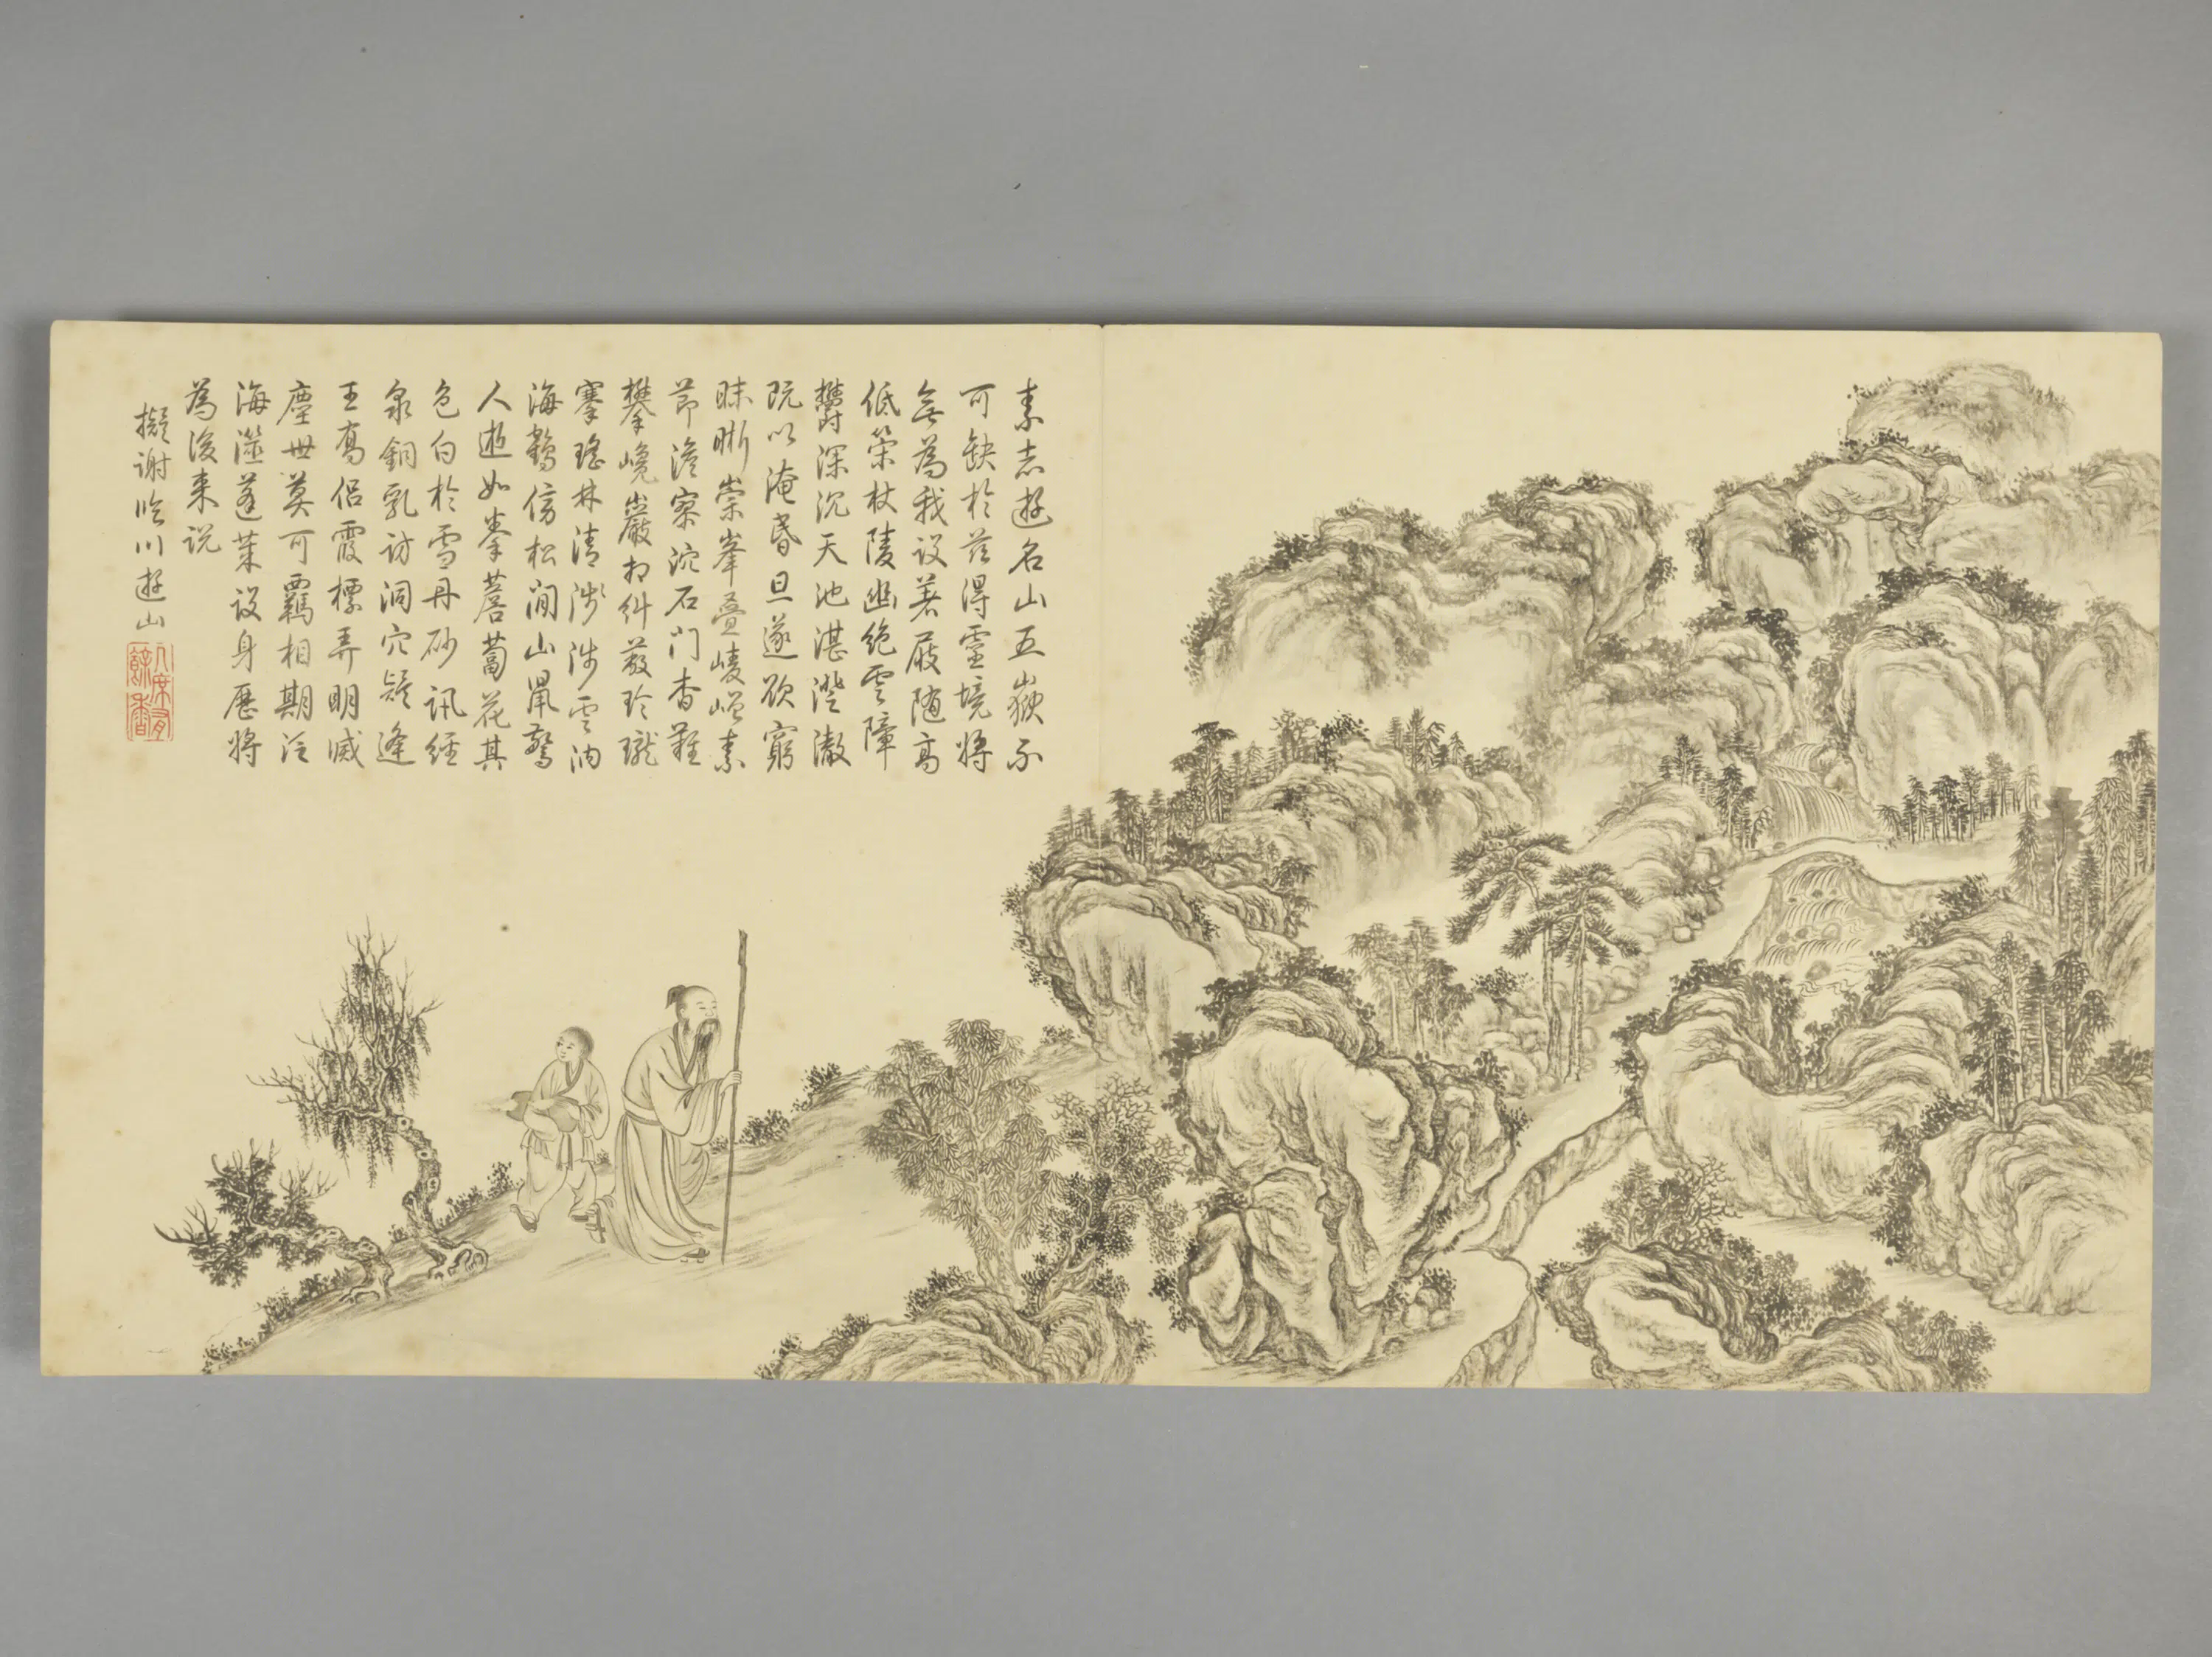 素志遊名山五嶽不
可缺於茲得靈境將
無為我设著屐随高
低策杖陵幽絶雲障
欝深沉天池湛澄澈
既以淹昏旦遂欲窮
昧晰崇峯疊崚嶒素
節澹寥泬石门杳難
攀巉巖糾蔽玲瓏
搴瑤林清淺涉雲
海鶴傍松间山鼠驚
人逝如拳薝蔔花其
色白於雪丹砂訊經
泉銅乳訪洞穴疑逢
王喬侶霞標弄明滅
塵世莫可羈相期泛
海澨蓬萊设身歷將
為後来说
擬謝臨川遊山
几席有餘香